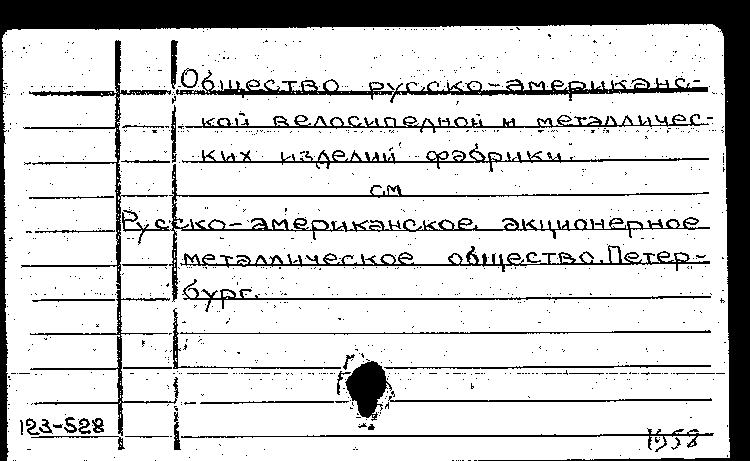 Общество русско-американс-
кой велосипедной и металличес-
ких изделий фабрики.
см
Русско-американское акционерное
металлическое общество. Петер-
бург.
123-528
1958